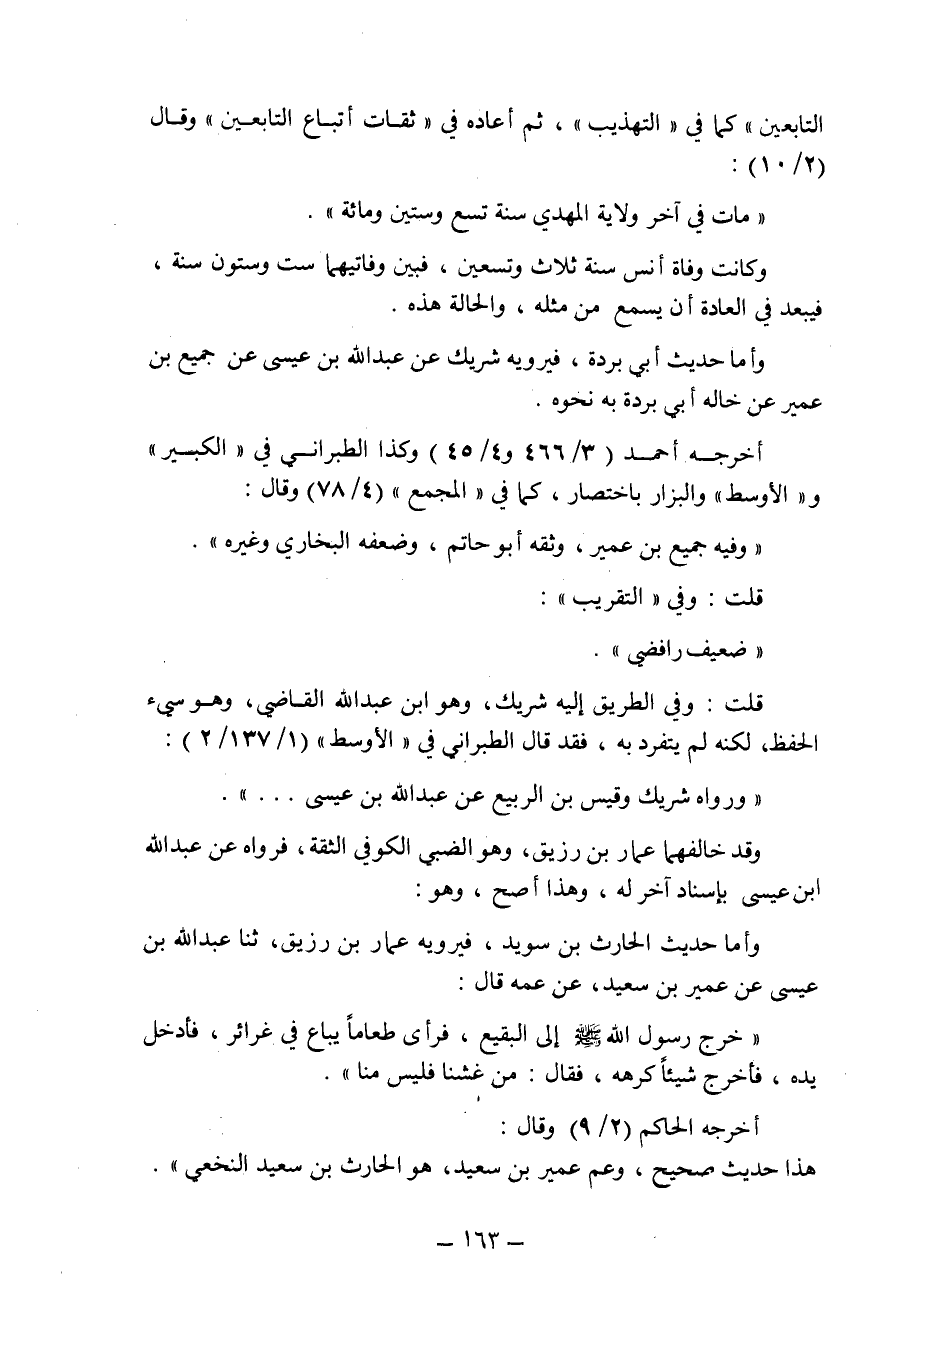 التابعين » كما في « التهذيب » ، ثم أعاده في « ثقـات أتبـاع التابعـين » وقـال
(١٠/٢) :
« مات في آخر ولاية المهدي سنة تسع وستين ومائة » .
وكانت وفاة أنس سنة ثلاث وتسعين ، فبين وفاتيهما ست وستون سنة ،
فيبعد في العادة أن يسمع من مثله ، والحالة هذه .
وأما حديث أبي بردة ، فيرويه شريك عن عبدالله بن عيسى عن جميع بن
عمير عن خاله أبي بردة به نحوه .
أخرجــه أحمــد ( ٣/ ٤٦٦ و٤/ ٤٥ ) وكذا الطبرانــي في « الكبــير »
و« الأوسط» والبزار باختصار ، كما في « المجمع » (٤/ ٧٨) وقال :
« وفيه جميع بن عمير ، وثقه أبو حاتم ، وضعفه البخاري وغيره » .
قلت : وفي « التقريب » :
« ضعيف رافضي » .
قلت : وفي الطريق إليه شريك، وهو ابن عبدالله القـاضي، وهـو سيء
الحفظ، لكنه لم يتفرد به ، فقد قال الطبراني في « الأوسط» (١/ ١٣٧/ ٢ ) :
« ورواه شريك وقيس بن الربيع عن عبدالله بن عيسى . . . » .
وقد خالفهما عمار بن رزيق، وهو الضبي الكوفي الثقة ، فرواه عن عبدالله
ابن عيسى بإسناد آخر له ، وهذا أصح ، وهو :
وأما حديث الحارث بن سويد ، فيرويه عمار بن رزيق، ثنا عبدالله بن
عيسى عن عمير بن سعيد، عن عمه قال :
« خرج رسول الله ﷺ إلى البقيع ، فرأى طعاماً يباع في غرائر ، فأدخل
يده ، فأخرج شيئاً كرهه ، فقال : من غشنا فليس منا » .
أخرجه الحاكم (٢/ ٩) وقال :
هذا حديث صحيح ، وعم عمير بن سعيد، هو الحارث بن سعيد النخعي » .
– ١٦٣ –